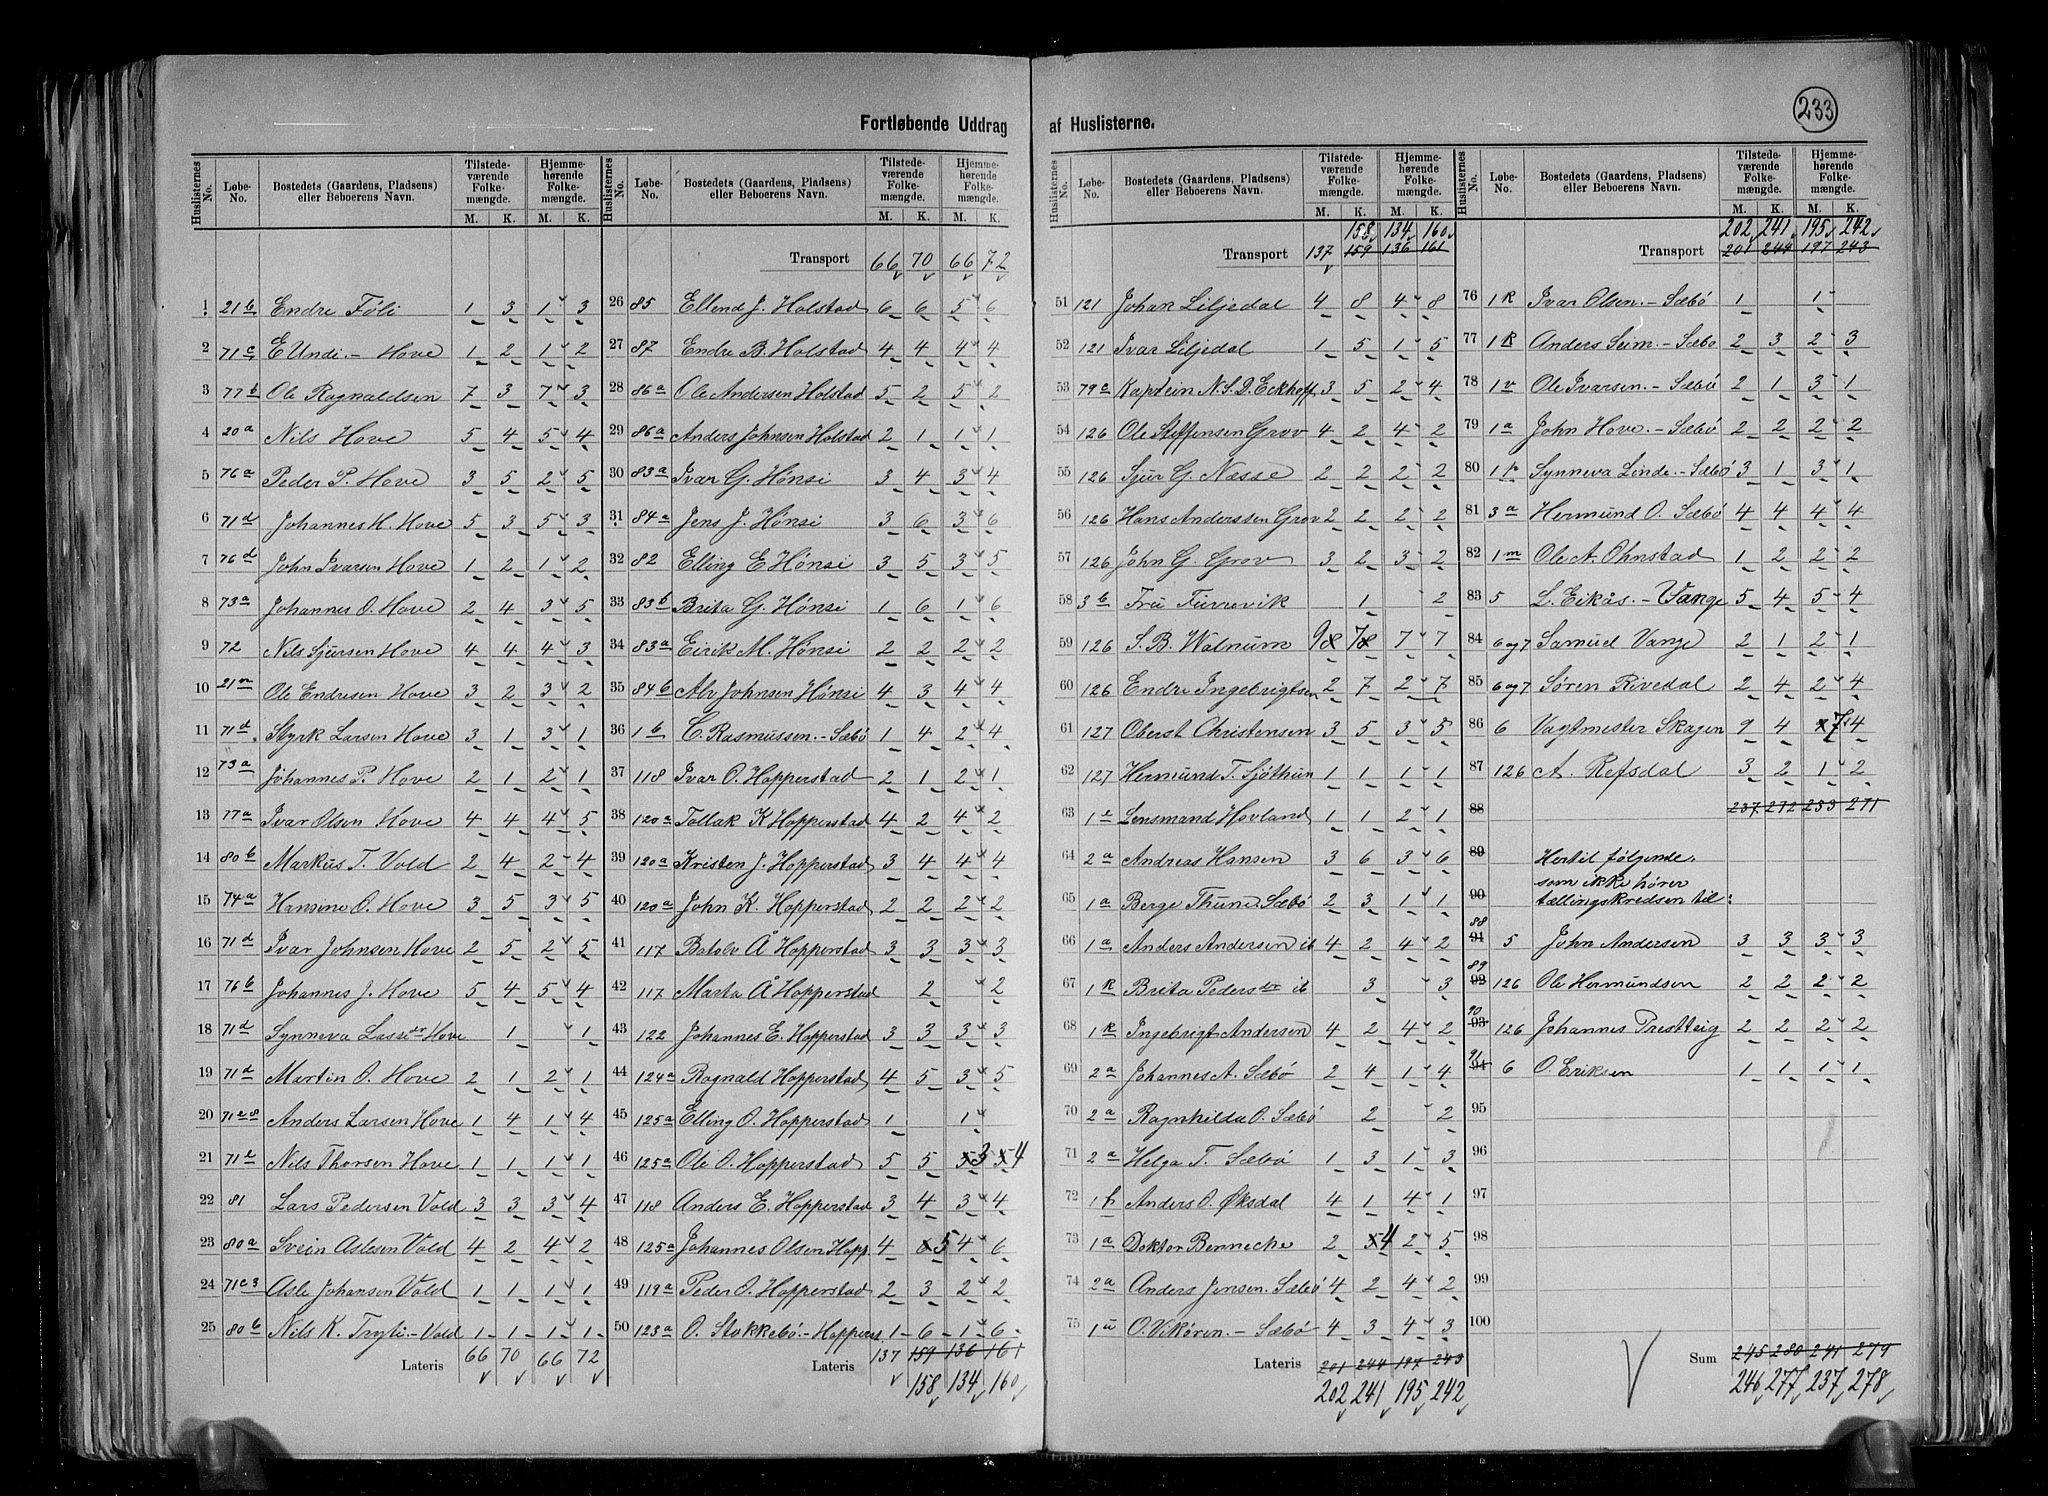 233
Fortløbende Uddrag af Huslisterne.
Huslisternes No. | Løbe-No. | Bostedets (Gaardens, Pladsens) eller Beboerens Navn. | Tilstedeværende Folkemængde. M. K. | Hjemmehørende Folkemængde. M. K.
1 21b Endre Føli 1 3 1 3
2 71c E Undi. - Hove 1 2 1 2
3 77b Ole Ragnaldsen 7 3 7 3
4 20a Nils Hove 5 4 5 4
5 76a Peder P. Hove 3 5 2 5
6 71d Johannes H. Hove 5 3 5 3
7 76d John Ivarsen Hove 1 2 1 2
8 73a Johannes O. Hove 2 4 3 5
9 72 Nils Sjursen Hove 4 4 4 3
10 21n Ole Endresen Hove 3 2 3 2
11 71d Styrk Larsen Hove 3 1 3 1
12 73a Johannes P. Hove 2 1 2 1
13 77a Ivar Olsen Hove 4 4 4 5
14 80b Markus T. Vold 2 4 2 4
15 74a Hansine O. Hove 3 5 3 5
16 71d Ivar Johnsen Hove 2 5 2 5
17 76b Johannes J. Hove 5 4 5 4
18 71d Synneva Lassedr Hove 1 1
19 71d Martin O. Hove 2 1 2 1
20 71e8 Anders Larsen Hove 1 4 1 4
21 71e Nils Thorsen Hove 1 1 1 1
22 81 Lars Pedersen Vold 3 3 3 4
23 80a Svein Aslesen Vold 4 2 4 2
24 71c3 Asle Johansen Vold 1 1 1 1
25 80b Nils K. Tryti - Vold 1 1 1 1
Lateris 66 70 66 72
Transport 66 70 66 72
26 85 Ellend J. Holstad 6 6 5 6
27 87 Endre B. Holstad 4 4 4 4
28 86a Ole Andersen Holstad 5 2 5 2
29 86a Anders Johnsen Holstad 2 1 1 1
30 83a Ivar G. Hønsi 3 4 3 4
31 84a Jens J. Hønsi 3 6 3 6
32 82 Elling E Hønsi 3 5 3 5
33 83b Brita G. Hønsi 1 6 1 6
34 83a Eirik M. Hønsi 2 2 2 2
35 84b Alv Johnsen Hønsi 4 3 4 4
36 1b C. Rasmussen. - Sæbø 1 4 2 4
37 118 Ivar O. Hopperstad 2 1 2 1
38 120a Tollak K Hopperstad 4 2 4 2
39 120a Kristen J. Hopperstad 3 4 4 4
40 120a John K. Hopperstad 2 2 2 2
41 117 Botolv Å Hopperstad 3 3 3 3
42 117 Marta Å Hopperstad 2 2
43 122 Johannes E. Hopperstad 3 3 3 3
44 124a Ragnald Hopperstad 4 5 3 5
45 125a Elling O. Hopperstad 1 1
46 125a Ole O. Hopperstad 5 5 3 4
47 118 Anders E. Hopperstad 3 4 3 4
48 125a Johannes Olsen Hopp. 4 5 4 6
49 119a Peder O. Hopperstad 2 3 2 2
50 123a O. Stokkebö. - Hopperst. 1 6 1 6
Lateris 137 159 136 161
158 134 160
158 134 160
Transport 137 159 136 161
51 121 Johan Liljedal 4 8 4 8
52 121 Ivar Liljedal 1 5 1 5
53 79a Kaptein N. S. D. Eckhoff 3 5 2 4
54 126 Ole Steffensen Grov 4 2 4 2
55 126 Sjur G. Næsse 2 2 2 2
56 126 Hans Anderssen Grov 2 2 2 2
57 126 John G. Grov 3 2 3 2
58 3b Fru Furrevik 1 2
59 126 S. B. Walnum 9 7 7 7
60 126 Endre Ingebrigtsen 2 7 2 7
61 127 Oberst Christensen 3 5 3 5
62 127 Hermund T. Sjøthun 1 1 1 1
63 1e Lensmand Hovland 1 1 2 1
64 2a Andreas Hansen 3 6 3 6
65 1a Berge Thune. Sæbö 2 3 1 1
66 1a Anders Andersen ib 4 2 4 2
67 1k Brita Pedersdr ib 3 3
68 1k Ingebrigt Andersen 4 2 4 2
69 2a Johannes A. Sæbö 2 4 1 4
70 2a Ragnhilda O. Sæbö 2 2
71 2a Helga T. Sæbö 1 3 1 3
72 1h Anders O. Øksdal 4 1 4 1
73 1a Doktor Benneche 2 4 2 5
74 2a Anders Jensen. Sæbö 4 2 4 2
75 1u O. Vikören. - Sæbö 4 3 4 3
Lateris 201 244 197 243
202 241 195 242
202 241 195 242
Transport 201 244 197 243
76 1k Ivar Olsen. - Sæbö 1 1
77 1k Anders Seim. - Sæbö 2 3 2 3
78 1v Ole Ivarsen. - Sæbö 2 1 3 1
79 1a John Hove. - Sæbö 2 2 2 2
80 1p Synneva Linde. - Sæbö 3 1 3 1
81 3a Hermund O. Sæbö 4 4 4 4
82 1m Ole A. Ohnstad 1 2 2 2
83 5 L. Eikås. - Vange 5 4 5 4
84 6 og 7 Samuel Vange 2 1 2 1
85 6 og 7 Søren Rivedal 2 4 2 4
86 6 Vagtmester Skagen 9 4 7 4
87 126 A. Refsdal 3 2 1 2
88 237 272 233 271
89 Hertil følgende
90 som ikke hører tællingskredsen til:
88 91 5 John Andersen 3 3 3 3
89 92 126 Ole Hermundsen 2 2 2 2
90 93 126 Johannes Prestteig 2 2 2 2
91 94 6 O. Eriksen 1 1 1 1
95
96
97
98
99
100
Sum 245 280 241 279
246 277 237 278